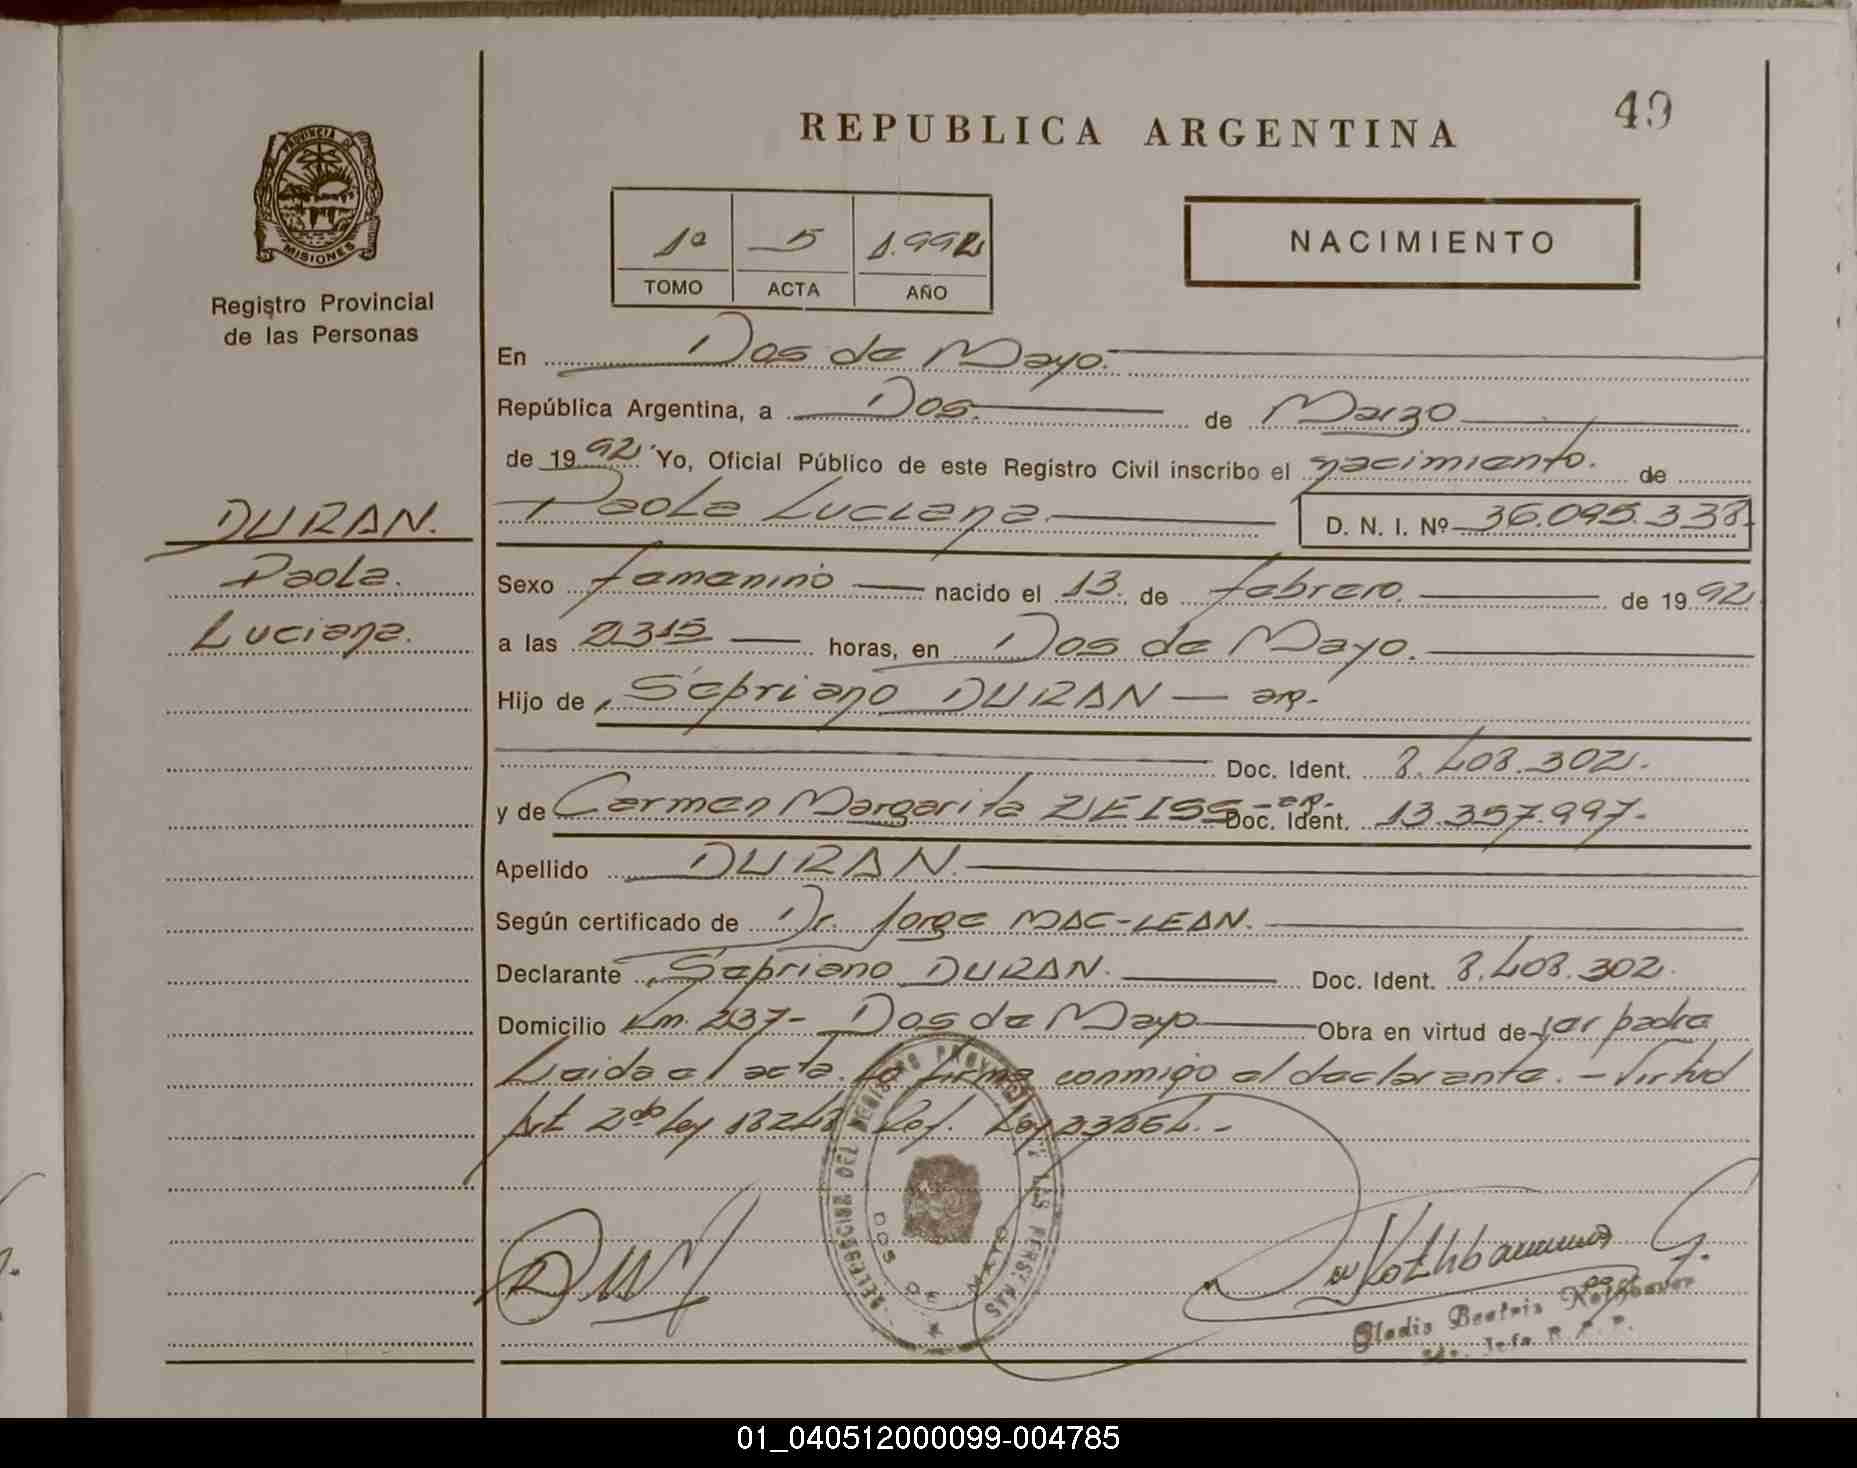 REPUBLICA ARGENTINA
49
PROVINCIA D
MISIONES
Registro Provincial
de las Personas
1º 5 1.992
TOMO ACTA AÑO
NACIMIENTO
En Dos de Mayo.
República Argentina, a Dos. de Marzo
de 1992 Yo, Oficial Público de este Registro Civil inscribo el nacimiento. de
DURAN.
Paola.
Luciana.
Paola Luciana. D. N. I. Nº 36.095.338.
Sexo femenino nacido el 13. de febrero. de 1992
a las 2315 horas, en Dos de Mayo.
Hijo de Sepriano DURAN — ar.-
Doc. Ident. 8.408.302.
y de Carmen Margarita ZUEISS -ar.- Doc. Ident. 13.357.997.
Apellido DURAN.
Según certificado de Dr. Jorge MAC-LEAN.
Declarante Sepriano DURAN. Doc. Ident. 8.408.302.
Domicilio Km. 237- Dos de Mayo Obra en virtud de ser padre
Leida el acta. la firma conmigo el declarante. - Virtud
Art 2do Ley 18248 Ley 23264.-
DELEGACION DEL REGISTRO PROVINCIAL DE LAS PERSONAS
DOS DE MAYO
Rothbauer G.
Gladis Beatriz Rothbauer
Jefa R. P. P.
01_040512000099-004785